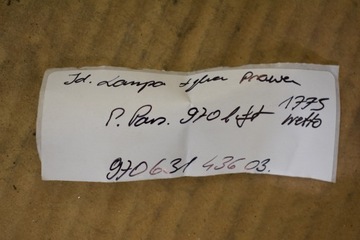 Id. Lampa tylna Prawa
P. Pan. 970 lift 1775 netto
970 631 436 03.